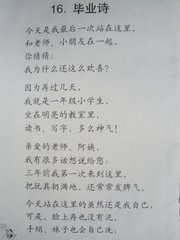 16. 毕业诗
今天是我最后一次站在这里，
和老师、小朋友在一起。
你猜猜：
我为什么还这么欢喜？
因为再过几天，
我就是一年级小学生，
坐在明亮的教室里，
读书、写字，多么神气！
亲爱的老师、阿姨，
我有很多话想说给您：
三年前我第一次来到这里，
把玩具扔满地，还常常发脾气。
今天站在这里的虽然还是我自己，
可是，脸上再也没有泥，
手绢、袜子也会自己洗；